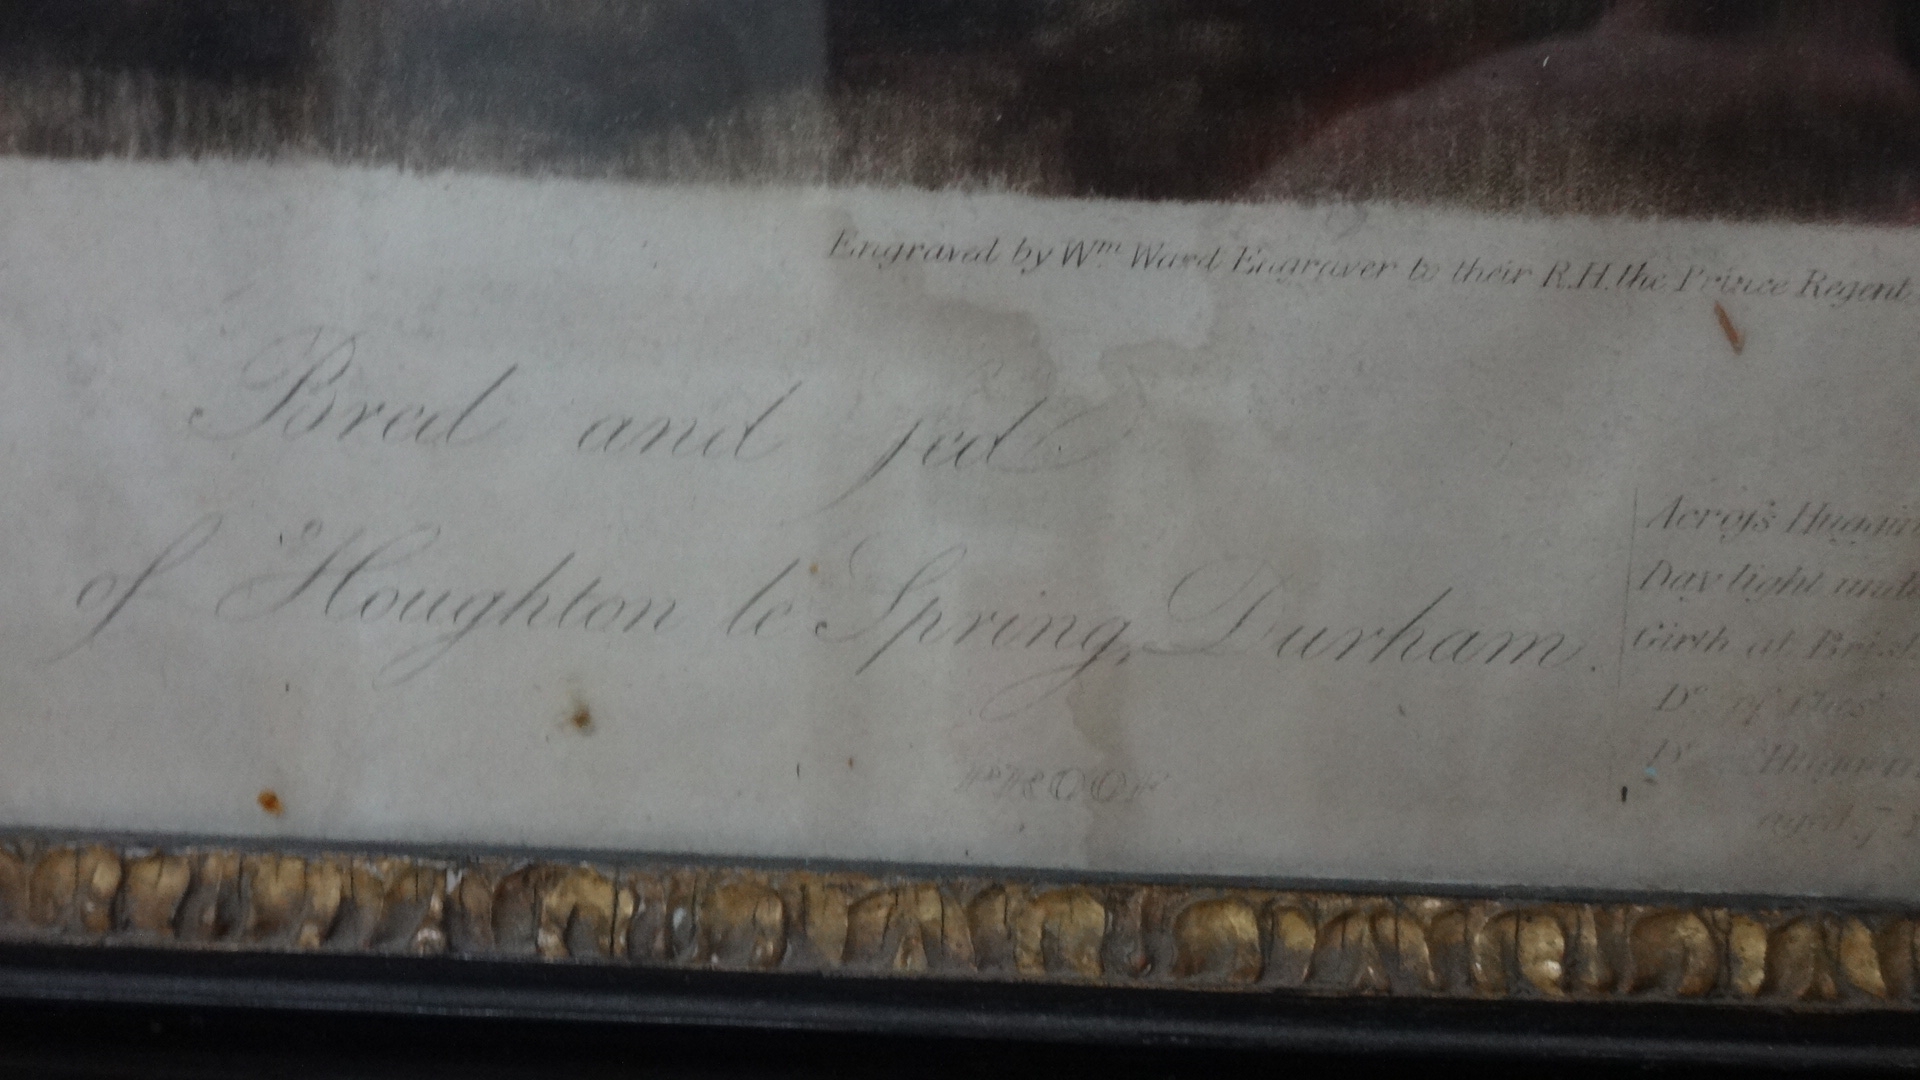 Engraved by Wm Ward Engraver to their R.H. the Prince Regent
Bred and fed
of Houghton le Spring, Durham.
PROOF
Across
Day light
Girth at
Do of
Do
aged